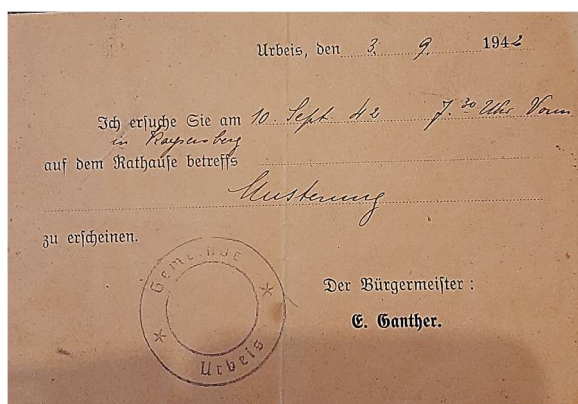 Urbeis, den 3. 9. 1942
Ich ersuche Sie am 10. Sept 42 7.30 Uhr Vorm
in Kaysersberg
auf dem Rathause betreffs
Musterung
zu erscheinen.
Gemeinde
Urbeis
Der Bürgermeister:
E. Ganther.